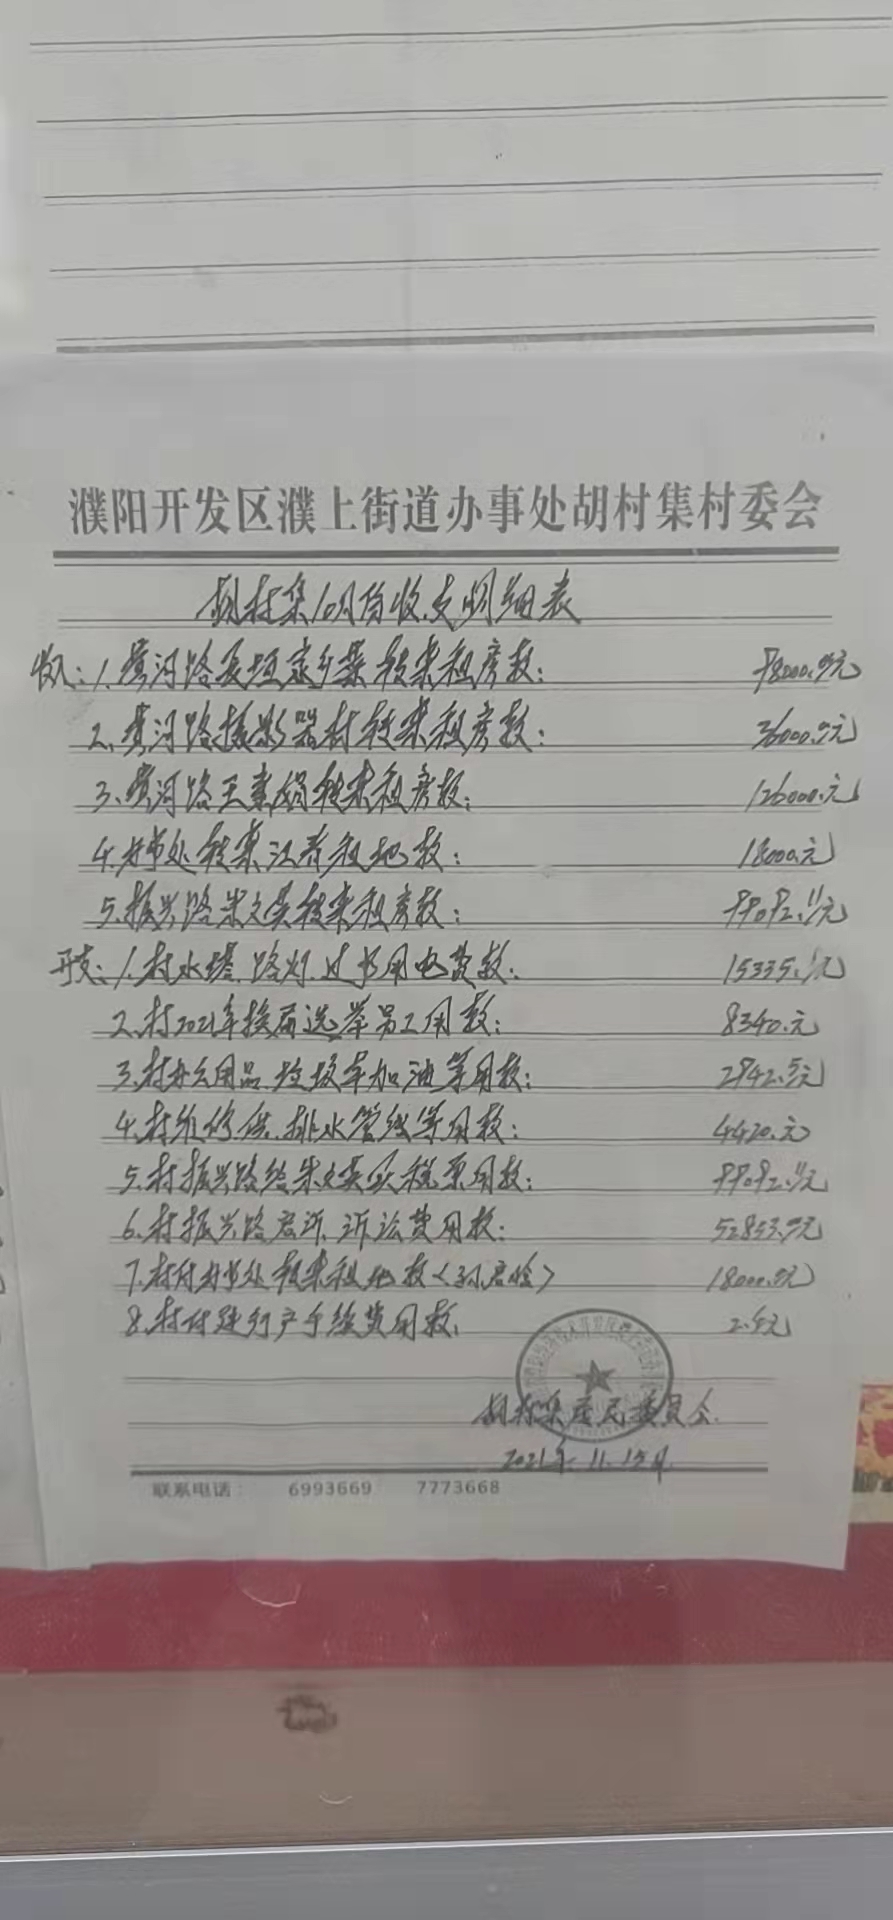 濮阳开发区濮上街道办事处胡村集村委会
胡村集10月份收支明细表
收入: 1.黄河路 转来租房款: 98000.00元
2.黄河路摄影器材转来租房款: 36000.00元
3.黄河路王素娟转来租房款: 126000.元
4.办事处转来江春租地款: 18000元
5.振兴路朱文英转来租房款:
开支: 1.村水塔.路灯. 用电费款: 15335. 元
2.村2021年换届选举误工用款: 8340.元
3.村办公用品.垃圾车加油等用款: 2942.5元
4.村维修.供.排水管线等用款: 4420.元
5.村振兴路给朱文英 税票用款:
6.村振兴路启诉.诉讼费用款: 52853.00元
7.村付办事处转来租地款 18000.00元
8.村付 手续费用款. 2.5元
胡村集居民委员会.
2021年.11.15日
联系电话: 6993669 7773668